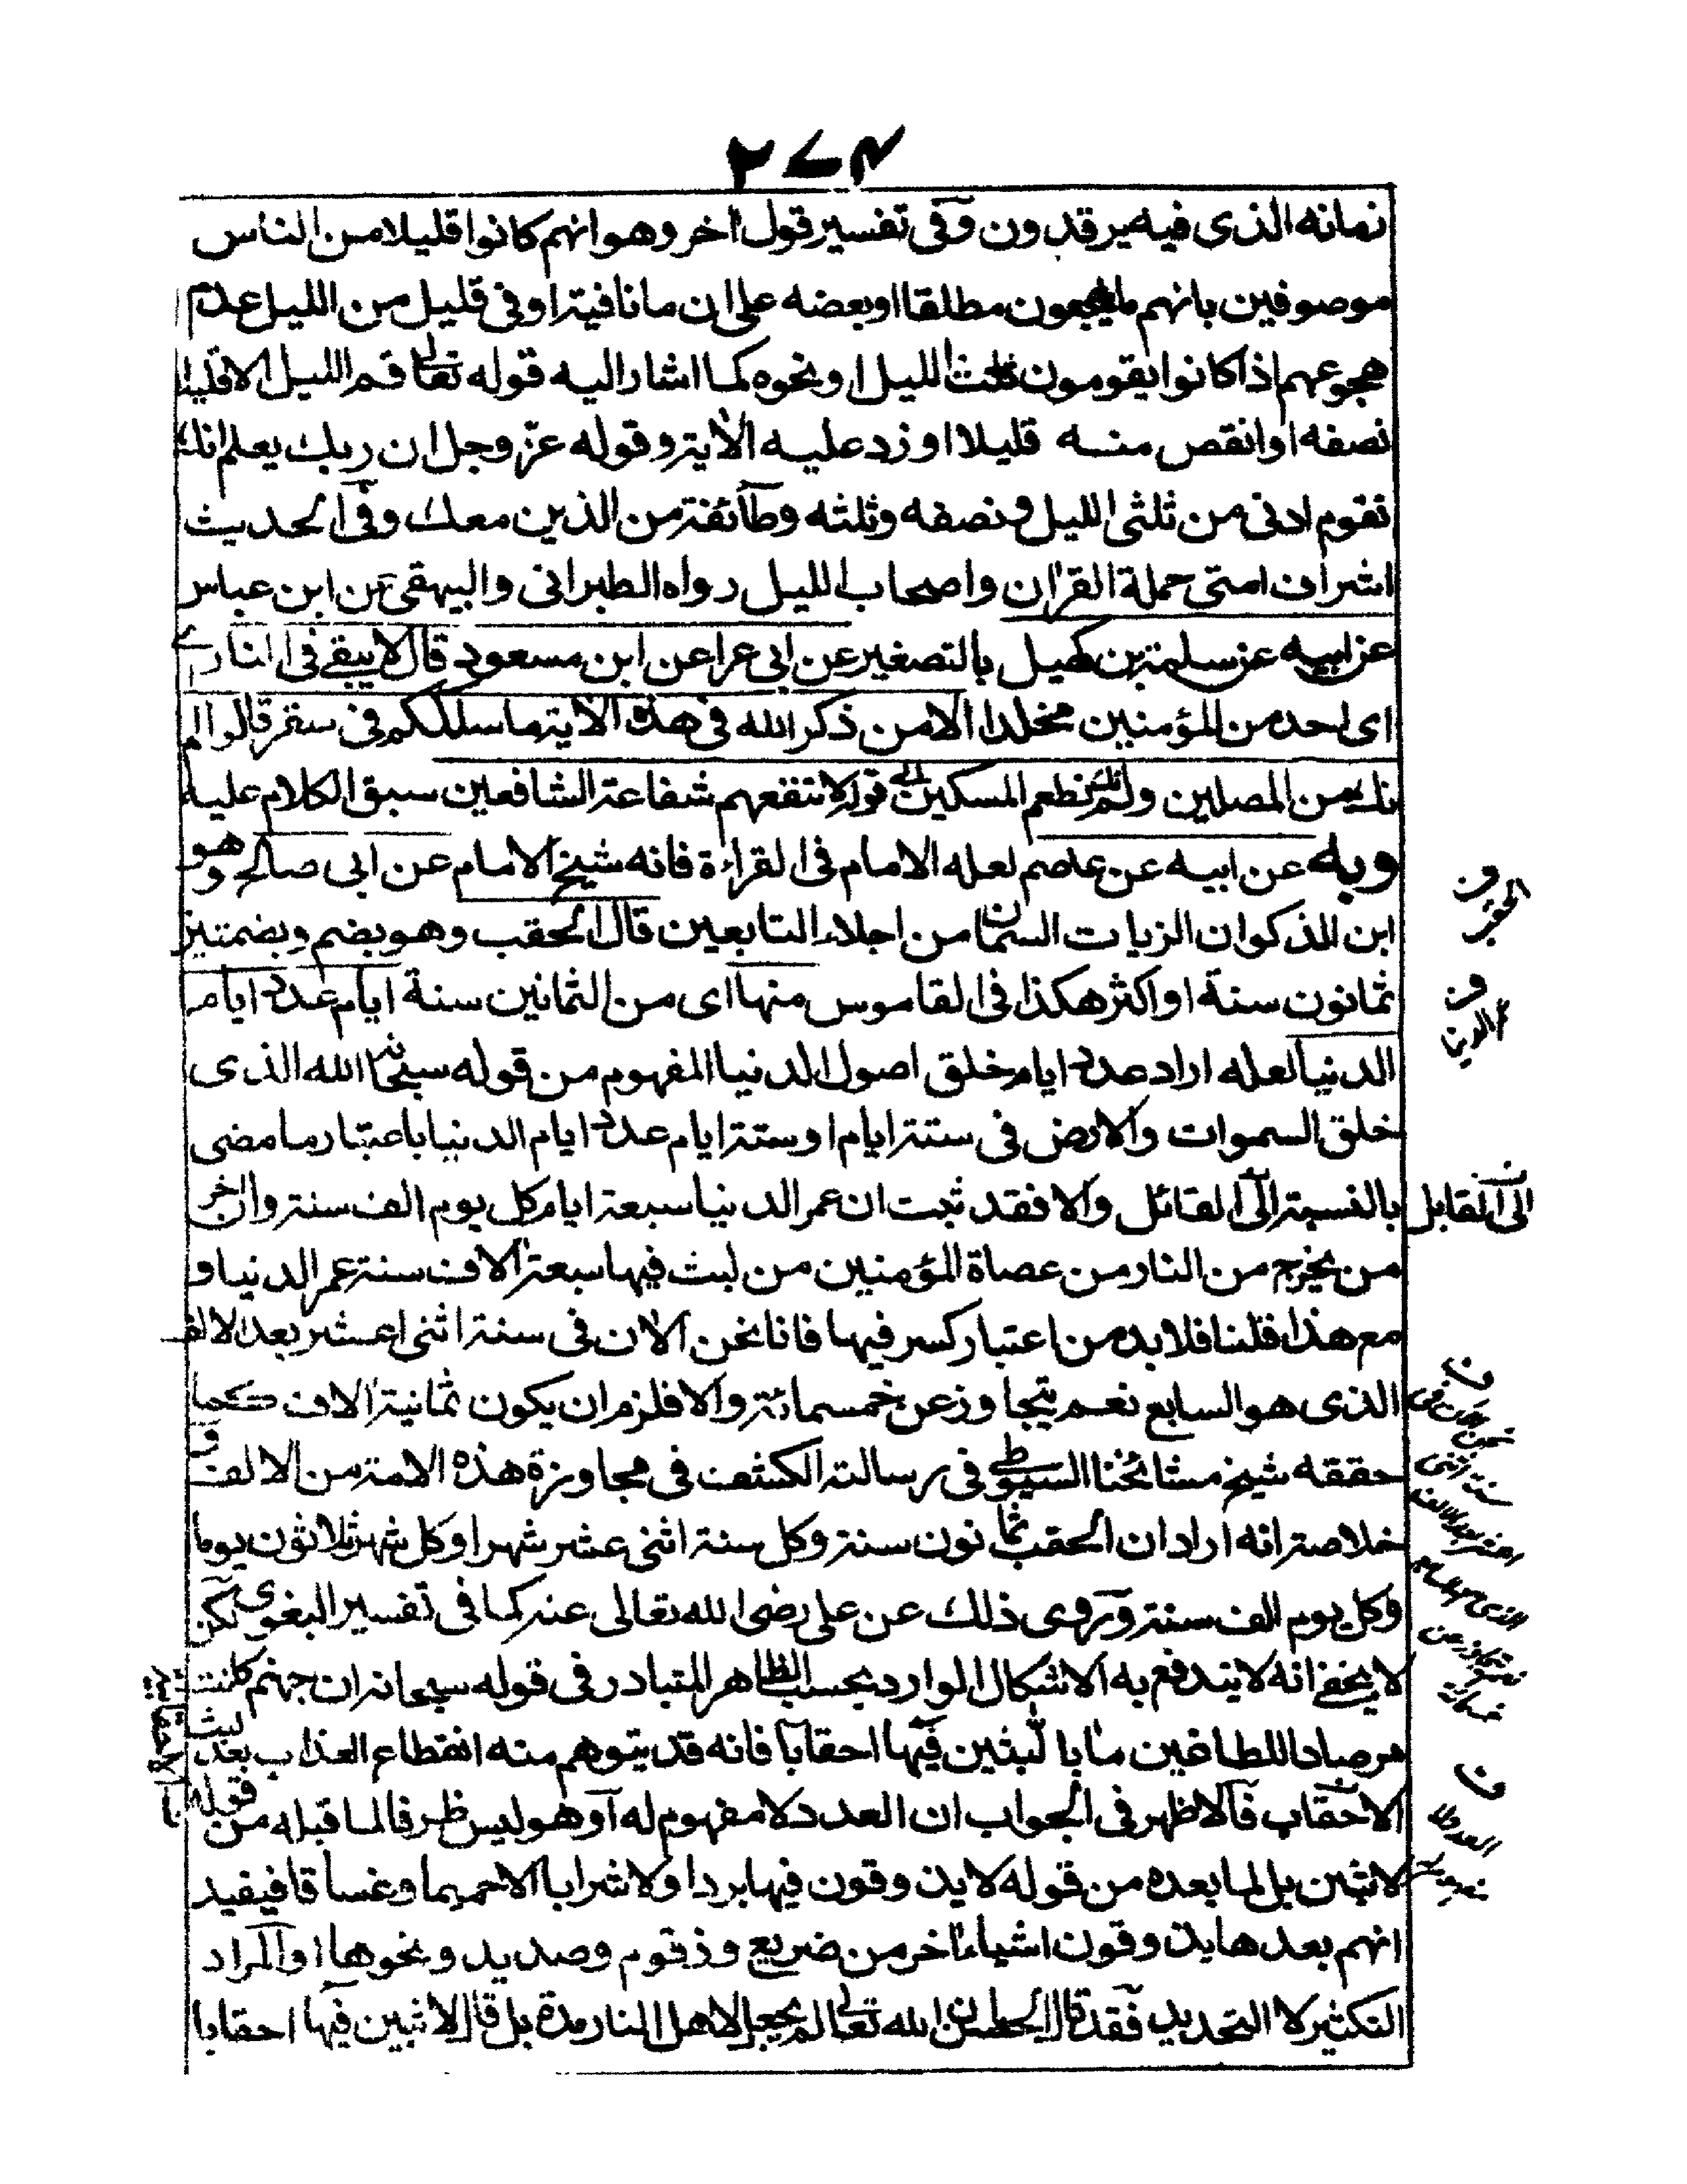 ٢٧٤
زمانه الذى فيه يرقدون وفى تفسير قول اخر وهوانهم كانوا قليلا من الناس
موصوفين بانهم ما يهجعون مطلقا اوبعضه على ان ما نافية اوفى قليل من الليل عدم
هجوعهم اذا كانوا يقومون ثلث الليل اونحوه كما اشار اليه قوله تعالى قم الليل الا قليلا
نصفه اوانقص منه قليلا اوزد عليه الاية وقوله عزّ وجل ان ربك يعلم انك
تقوم ادنى من ثلثى الليل ونصفه وثلثه وطائفة من الذين معك وفى الحديث
اشراف امتى حملة القران واصحاب الليل رواه الطبرانى والبيهقى عن ابن عباس
عن ابيه عن سلمة بن كهيل بالتصغير عن ابى عرا عن ابن مسعود قال لا يبقى فى النار
اى احد من المؤمنين مخلدا الا من ذكر الله فى هذه الاية ما سلككم فى سقر قالوا لم
نك من المصلين ولم نك نطعم المسكين الى قوله لا تنفعهم شفاعة الشافعين سبق الكلام عليه
وبه عن ابيه عن عاصم لعله الامام فى القراءة فانه شيخ الامام عن ابى صالح وهو
ابن الذكوان الزيات السمان من اجلاء التابعين قال الحقب وهو بضم وبضمتين
ثمانون سنة او اكثر هكذا فى القاموس منها اى من الثمانين سنة ايام عدد ايام
الدنيا لعله اراد عدد ايام خلق اصول الدنيا المفهوم من قوله سبحانه الله الذى
خلق السموات والارض فى ستة ايام اوستة ايام عدد ايام الدنيا باعتبار ما مضى
بالنسبة الى القائل والا فقد ثبت ان عمر الدنيا سبعة ايام كل يوم الف سنة وان اخر
من يخرج من النار من عصاة المؤمنين من لبث فيها سبعة الاف سنة عمر الدنيا و
مع هذا قلنا فلا بد من اعتبار كسر فيها فانا نحن الان فى سنة اثنى عشر بعد الالف
الذى هو السابع نعم يتجاوز عن خمسمائة والا فلزم ان يكون ثمانية الاف كما
حققه شيخ مشائخنا السيوطى فى رسالته الكشف فى مجاوزة هذه الامة من الالف و
خلاصته انه اراد ان الحقب ثمانون سنة وكل سنة اثنى عشر شهرا وكل شهر ثلاثون يوما
وكل يوم الف سنة وروى ذلك عن على رضى الله تعالى عنه كما فى تفسير البغوى لكن
لا يخفى انه لا يندفع به الاشكال الوارد بحسب الظاهر المتبادر فى قوله سبحانه ان جهنم كانت
مرصادا للطاغين مابا لبثين فيها احقابا فانه قد يتوهم منه انقطاع العذاب بعد لبث
الاحقاب فالاظهر فى الجواب ان العدد لا مفهوم له او هو ليس ظرفا لما قبله من قوله
لابثين بل لما بعده من قوله لا يذوقون فيها بردا ولا شرابا الا حميما وغساقا فيفيد
انهم بعدها يذوقون اشياء اخر من ضريع وزقوم وصديد ونحوها اوالمراد
التكثير لا التحديد فقد قال الحسن ان الله تعالى لم يجعل لاهل النار مدة بل قال لابثين فيها احقابا
الى المقابل